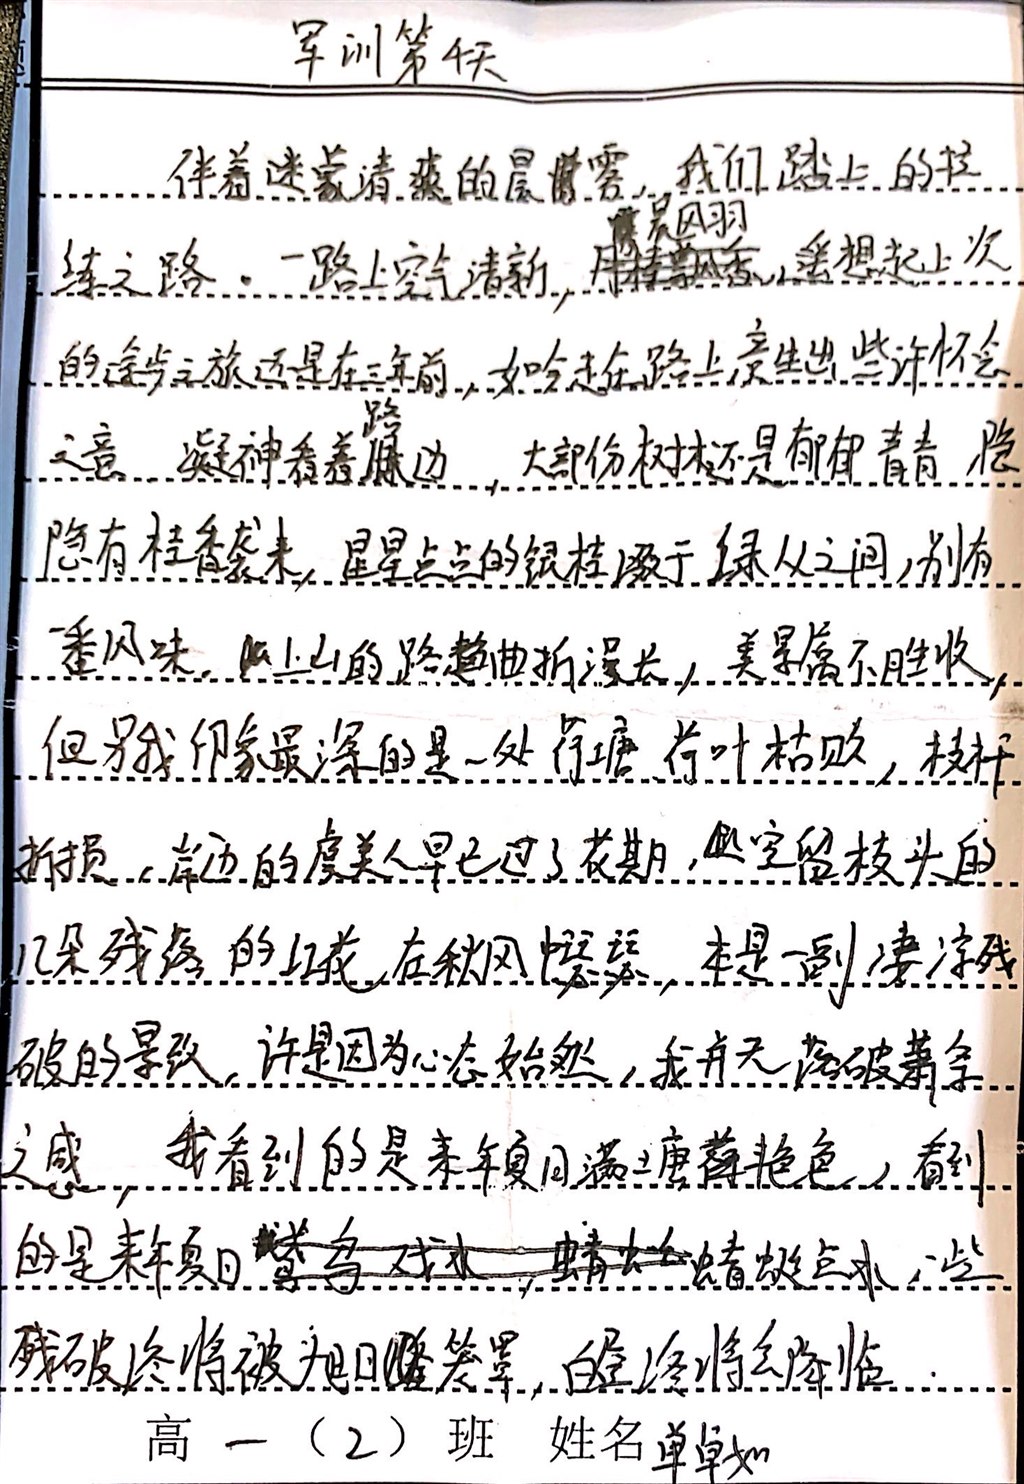 军训第4天
伴着迷蒙清爽的晨雾,我们踏上的拉
晨风羽
练之路.一路上空气清新,遥想起上次
的途步之旅还是在三年前,如今走在路上竟生出些许怀念
路
之意 凝神看着边,大部份树林还是郁郁青青 隐
隐有桂香袭来,星星点点的银桂缀于绿丛之间,别有
一番风味.上山的路曲折漫长,美景属不胜收,
但另我印象最深的是一处荷塘 荷叶枯败,枝杆
折损,岸边的虞美人早已过了花期,空留枝头的
几朵残落的红花,在秋风中瑟瑟,本是一副凄凉残
破的景致,许是因为心态始然,我并无落破萧条
之感,我看到的是来年夏日满塘艳色,看到
的是来年夏日 蜻蜓点水,一些
残破终将被旭日笼罩,白昼终将会降临.
高一(2)班 姓名单卓如